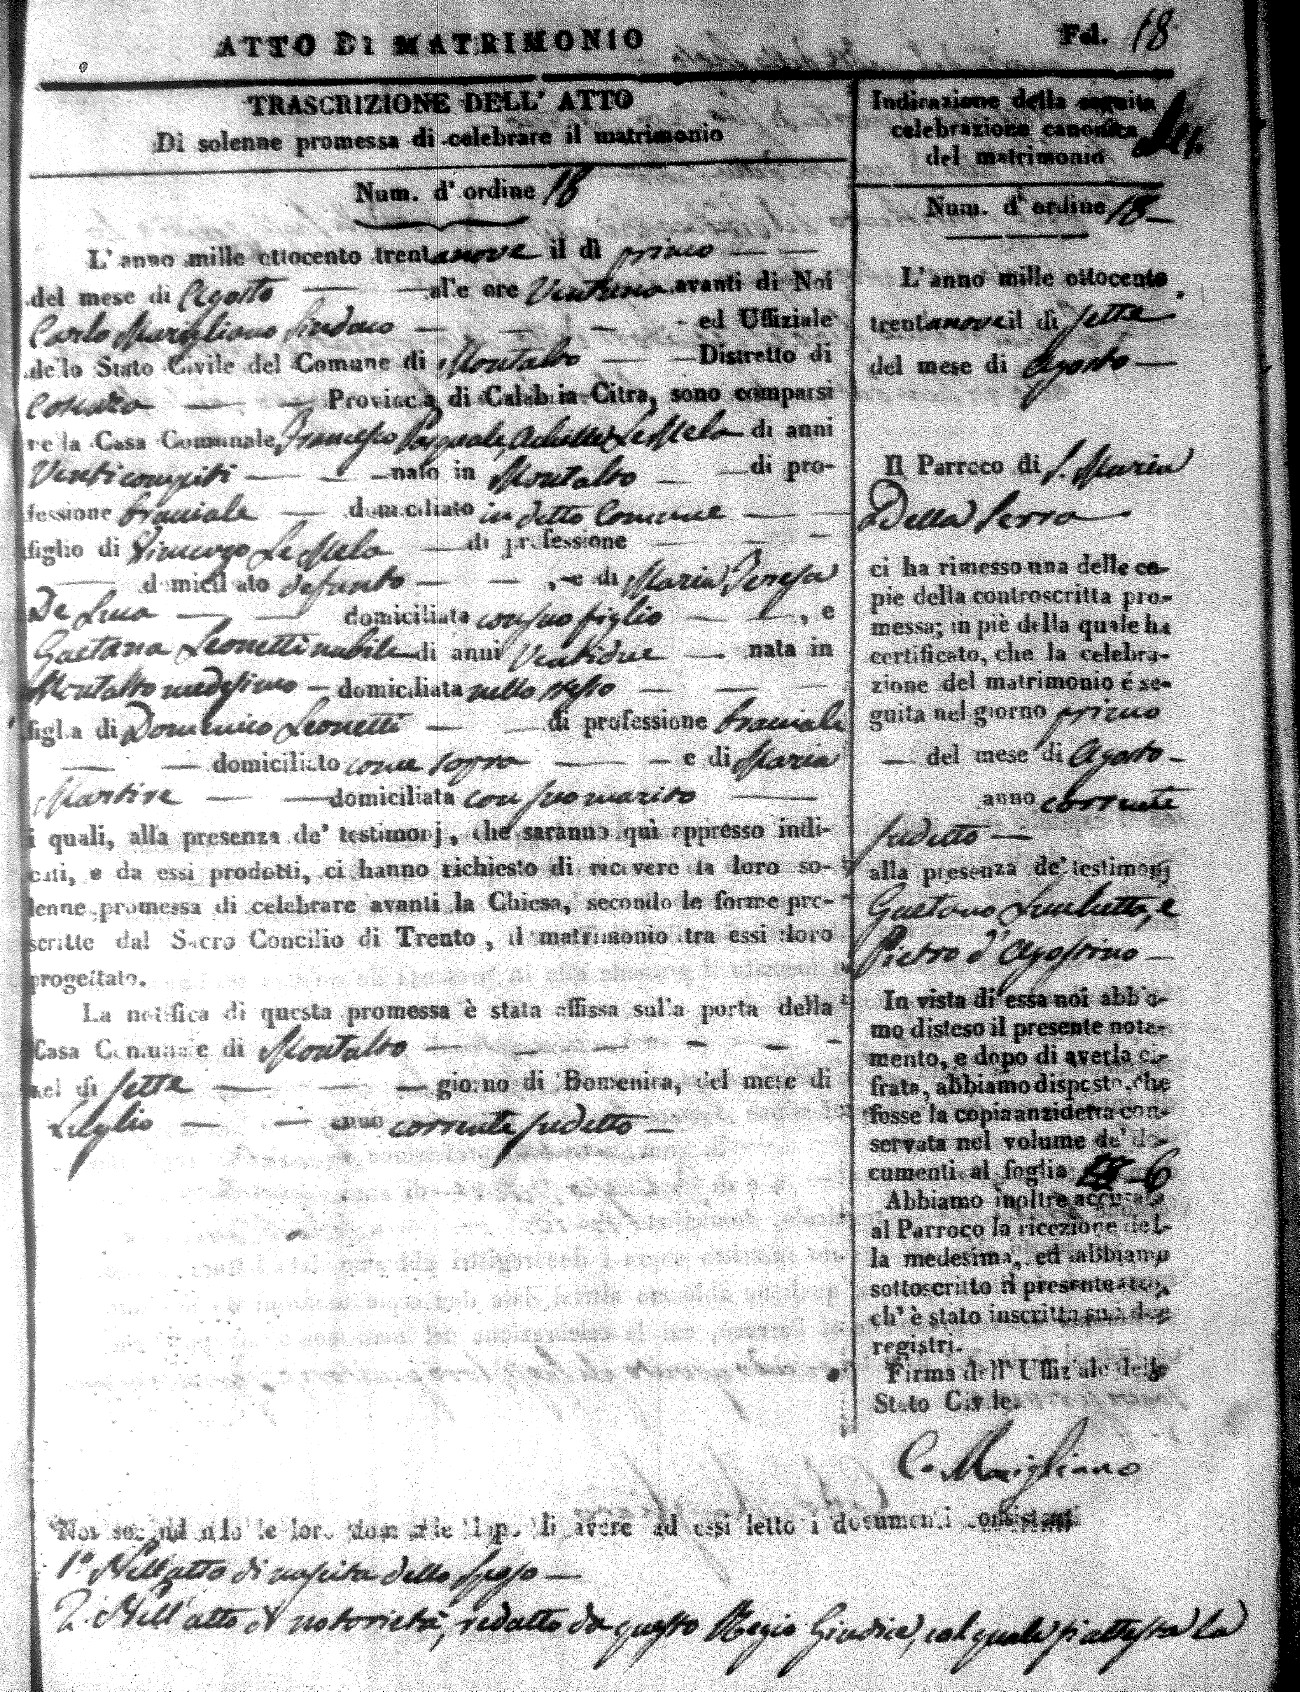 ATTO DI MATRIMONIO
Fol. 18
TRASCRIZIONE DELL' ATTO
Di solenne promessa di celebrare il matrimonio
Num. d' ordine 18
L' anno mille ottocento trentanove il dì primo
del mese di Agosto alle ore Ventuno avanti di Noi
Carlo Marigliano Sindaco ed Uffiziale
dello Stato Civile del Comune di Montalto Distretto di
Cosenza Provincia di Calabria Citra, sono comparsi
ne la Casa Comunale, Francesco Pasquale Achille di anni
Venti compiti nato in Montalto di pro-
fessione bracciale domiciliato in detto Comune
figlio di di professione
domiciliato defunto , e di Maria Teresa
De Luca domiciliata con suo figlio , e
Gaetana Leonetti nubile di anni Ventidue nata in
Montalto medesimo domiciliata nello stesso
figlia di Domenico Leonetti di professione bracciale
domiciliato come sopra e di Maria
Martire domiciliata con suo marito
i quali, alla presenza de' testimonj, che saranno quì appresso indi-
cati, e da essi prodotti, ci hanno richiesto di ricevere la loro so-
lenne promessa di celebrare avanti la Chiesa, secondo le forme pre-
scritte dal Sacro Concilio di Trento, il matrimonio tra essi loro
progettato.
La notifica di questa promessa è stata affissa sulla porta della
Casa Comunale di Montalto
nel dì sette giorno di Domenica, del mese di
Luglio anno corrente sudetto
Indicazione della seguita
celebrazione canonica
del matrimonio
Num. d' ordine 18
L' anno mille ottocento
trentanove il dì sette
del mese di Agosto
Il Parroco di S. Maria
Della Serra
ci ha rimesso una delle co-
pie della controscritta pro-
messa; in piè della quale ha
certificato, che la celebra-
zione del matrimonio é se-
guita nel giorno primo
del mese di Agosto
anno corrente
sudetto
alla presenza de' testimonj
Gaetano e
Pietro d'Agostino
In vista di essa noi abbia-
mo disteso il presente nota-
mento, e dopo di averla ci-
frata, abbiamo disposto, che
fosse la copia anzidetta con-
servata nel volume de' do-
cumenti al foglio 6
Abbiamo inoltre accusato
al Parroco la ricezione del-
la medesima, ed abbiamo
sottoscritto il presente atto,
ch' è stato inscritto su due
registri.
Firma dell' Uffiziale dello
Stato Civile.
C. Marigliano
Noi secondando le loro domande dopo di avere ad essi letto i documenti consistenti
1º Nell'atto di nascita dello sposo
2. Nell'atto di notorietà, redatto da questo Regio Giudice, col quale si attesta la